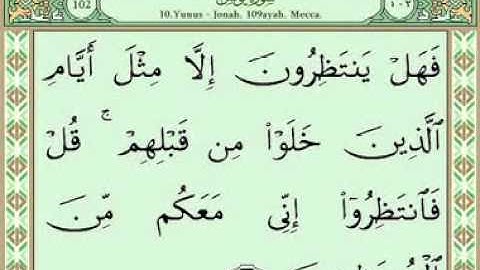 102 10.Yunus - Jonah. 109ayah. Mecca. ١٠٢
فَهَلْ يَنتَظِرُونَ إِلَّا مِثْلَ أَيَّامِ
ٱلَّذِينَ خَلَوْا۟ مِن قَبْلِهِمْ ۚ قُلْ
فَٱنتَظِرُوٓا۟ إِنِّى مَعَكُم مِّنَ